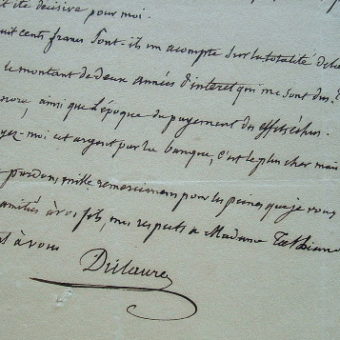 été décisive pour moi.
cents francs sont-ils un acompte sur la totalité de
le montant de deux années d'interet qui me sont dus.
ainsi que l'époque du payement des effets échus.
yez-moi cet argent par la banque, c'est le plus cher mais
pardon, mille remerciemens pour les peines que je vous
amitiés à vos fils, mes respects a Madame
à vous
Dulaure